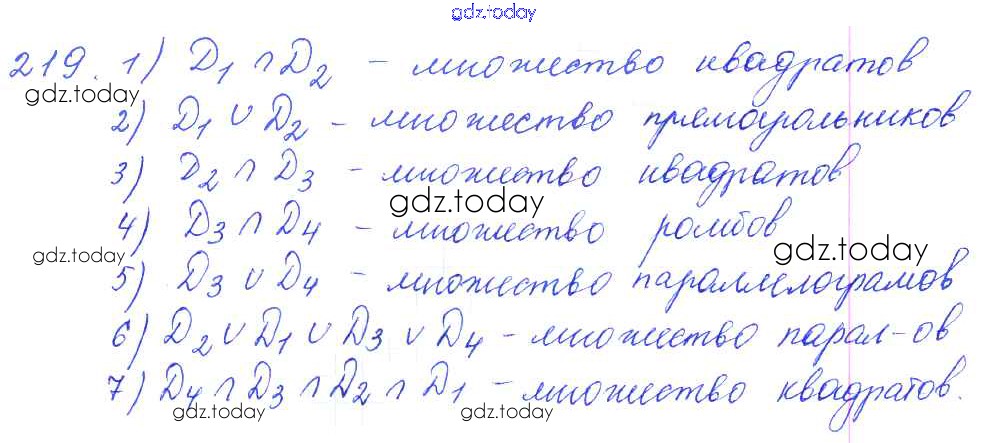 gdz.today
219. 1) D₁ ∩ D₂ – множество квадратов
gdz.today
2) D₁ ∪ D₂ – множество прямоугольников
3) D₂ ∩ D₃ – множество квадратов
gdz.today
4) D₃ ∩ D₄ – множество ромбов
gdz.today
gdz.today
5) D₃ ∪ D₄ – множество параллелограмов
6) D₂ ∪ D₁ ∪ D₃ ∪ D₄ – множество парал-ов
7) D₄ ∩ D₃ ∩ D₂ ∩ D₁ – множество квадратов.
gdz.today
gdz.today
gdz.today